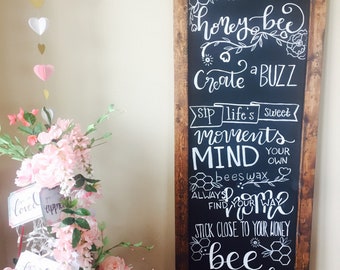 honey bee
Create a BUZZ
sip life's sweet
moments
MIND YOUR
OWN
beeswax
ALWAYS
home
FIND YOUR WAY
STICK CLOSE TO YOUR HONEY
bee
loved